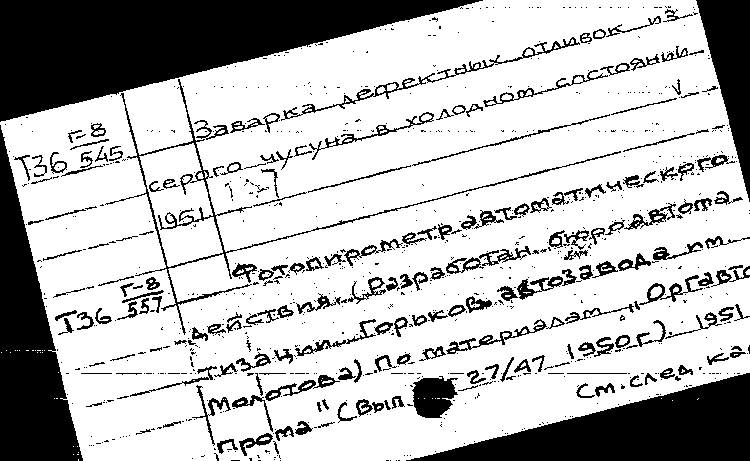 Заварка дефектных отливок из
Т36 Г-8/545
серого чугуна в холодном состоянии
1951
Фотопирометр автоматического
Т36 Г-8/557
действия. (Разработан бюро автома-
тизации Горьков. автозавода им.
Молотова) По материалам "Оргавто
прома" (Вып 27/47 1950г.) 1951
См. след. ка